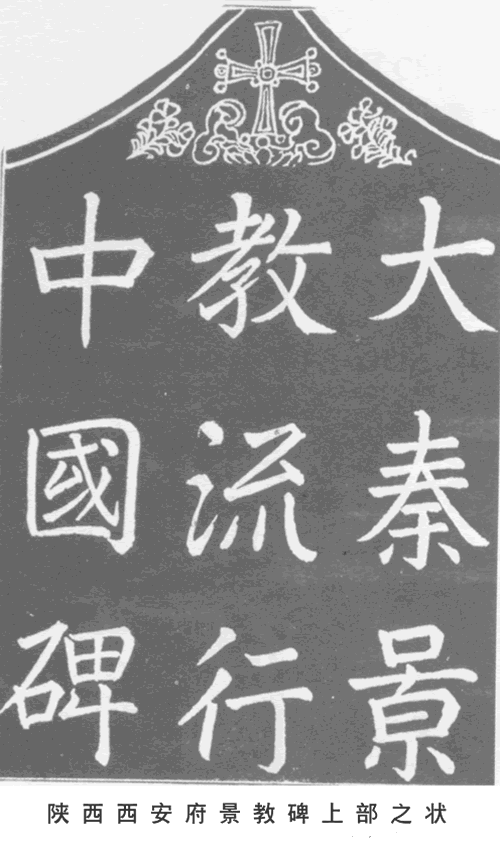 大秦景
教流行
中國碑
陕西西安府景教碑上部之状